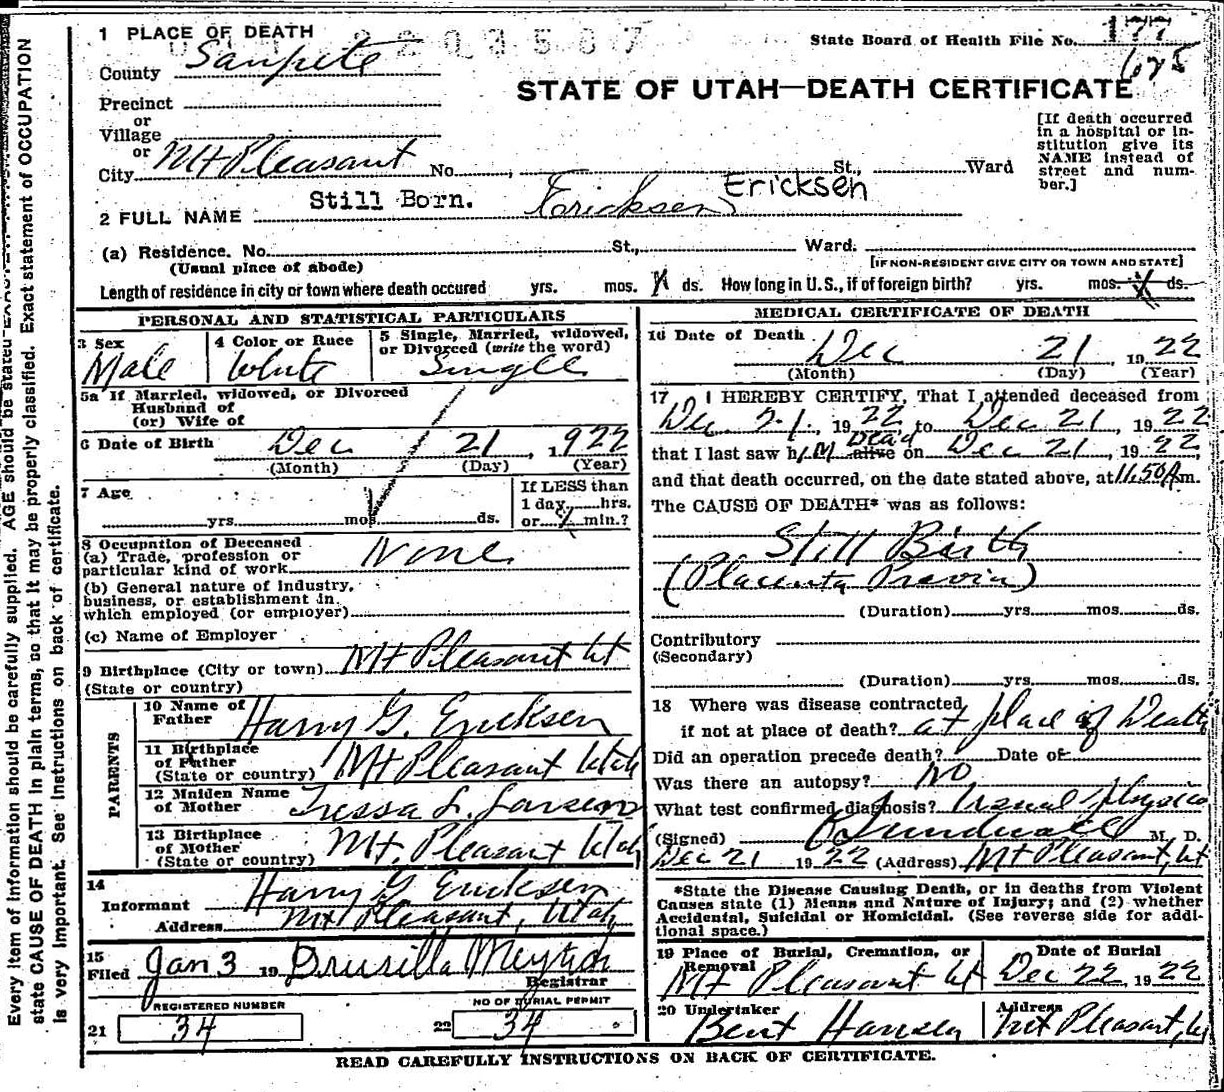 Every item of information should be carefully supplied. AGE should be stated EXACTLY.
state CAUSE OF DEATH in plain terms, so that it may be properly classified. Exact statement of OCCUPATION
is very important. See instructions on back of certificate.
1 PLACE OF DEATH
State Board of Health File No. 177
625
County Sanpete
STATE OF UTAH—DEATH CERTIFICATE
Precinct
or
Village
or
City Mt Pleasant No. , St., Ward
[If death occurred
in a hospital or in-
stitution give its
NAME instead of
street and num-
ber.]
2 FULL NAME Still Born. Ericksen Ericksen
(a) Residence. No. St., Ward.
(Usual place of abode) [IF NON-RESIDENT GIVE CITY OR TOWN AND STATE]
Length of residence in city or town where death occured yrs. mos. X ds. How long in U.S., if of foreign birth? yrs. mos. X ds.
PERSONAL AND STATISTICAL PARTICULARS
3 Sex Male
4 Color or Race White
5 Single, Married, widowed,
or Divorced (write the word)
Single
5a If Married, widowed, or Divorced
Husband of
(or) Wife of
6 Date of Birth Dec 21, 1922
(Month) (Day) (Year)
7 Age
yrs. mos. ds.
If LESS than
1 day, hrs.
or min.?
8 Occupation of Deceased
(a) Trade, profession or
particular kind of work None
(b) General nature of industry,
business, or establishment in
which employed (or employer)
(c) Name of Employer
9 Birthplace (City or town) Mt Pleasant Ut
(State or country)
PARENTS
10 Name of
Father Harry G. Ericksen
11 Birthplace
of Father
(State or country) Mt Pleasant Utah
12 Maiden Name
of Mother Tressa L. Larsen
13 Birthplace
of Mother
(State or country) Mt. Pleasant Utah
14
Informant Harry G Ericksen
Address Mt Pleasant, Utah
15
Filed Jan 3 19 Drusilla
Registrar
REGISTERED NUMBER
21 34
NO OF BURIAL PERMIT
22 34
MEDICAL CERTIFICATE OF DEATH
16 Date of Death
Dec 21 1922
(Month) (Day) (Year)
17 I HEREBY CERTIFY, That I attended deceased from
Dec 21, 1922, to Dec 21 1922
that I last saw him Dead alive on Dec 21, 1922,
and that death occurred, on the date stated above, at 11.50 A m.
The CAUSE OF DEATH* was as follows:
Still Birth
(Placenta Previa)
(Duration) yrs. mos. ds.
Contributory
(Secondary)
(Duration) yrs. mos. ds.
18 Where was disease contracted
if not at place of death? at place of Death
Did an operation precede death? Date of
Was there an autopsy? No
What test confirmed diagnosis? Usual physica
(Signed) Sundwall M. D.
Dec 21 1922 (Address) Mt Pleasant, Ut
*State the Disease Causing Death, or in deaths from Violent
Causes state (1) Means and Nature of Injury; and (2) whether
Accidental, Suicidal or Homicidal. (See reverse side for addi-
tional space.)
19 Place of Burial, Cremation, or
Removal
Mt Pleasant Ut
Date of Burial
Dec 22, 1922
20 Undertaker
Bent Hansen
Address
Mt Pleasant, Ut
READ CAREFULLY INSTRUCTIONS ON BACK OF CERTIFICATE.